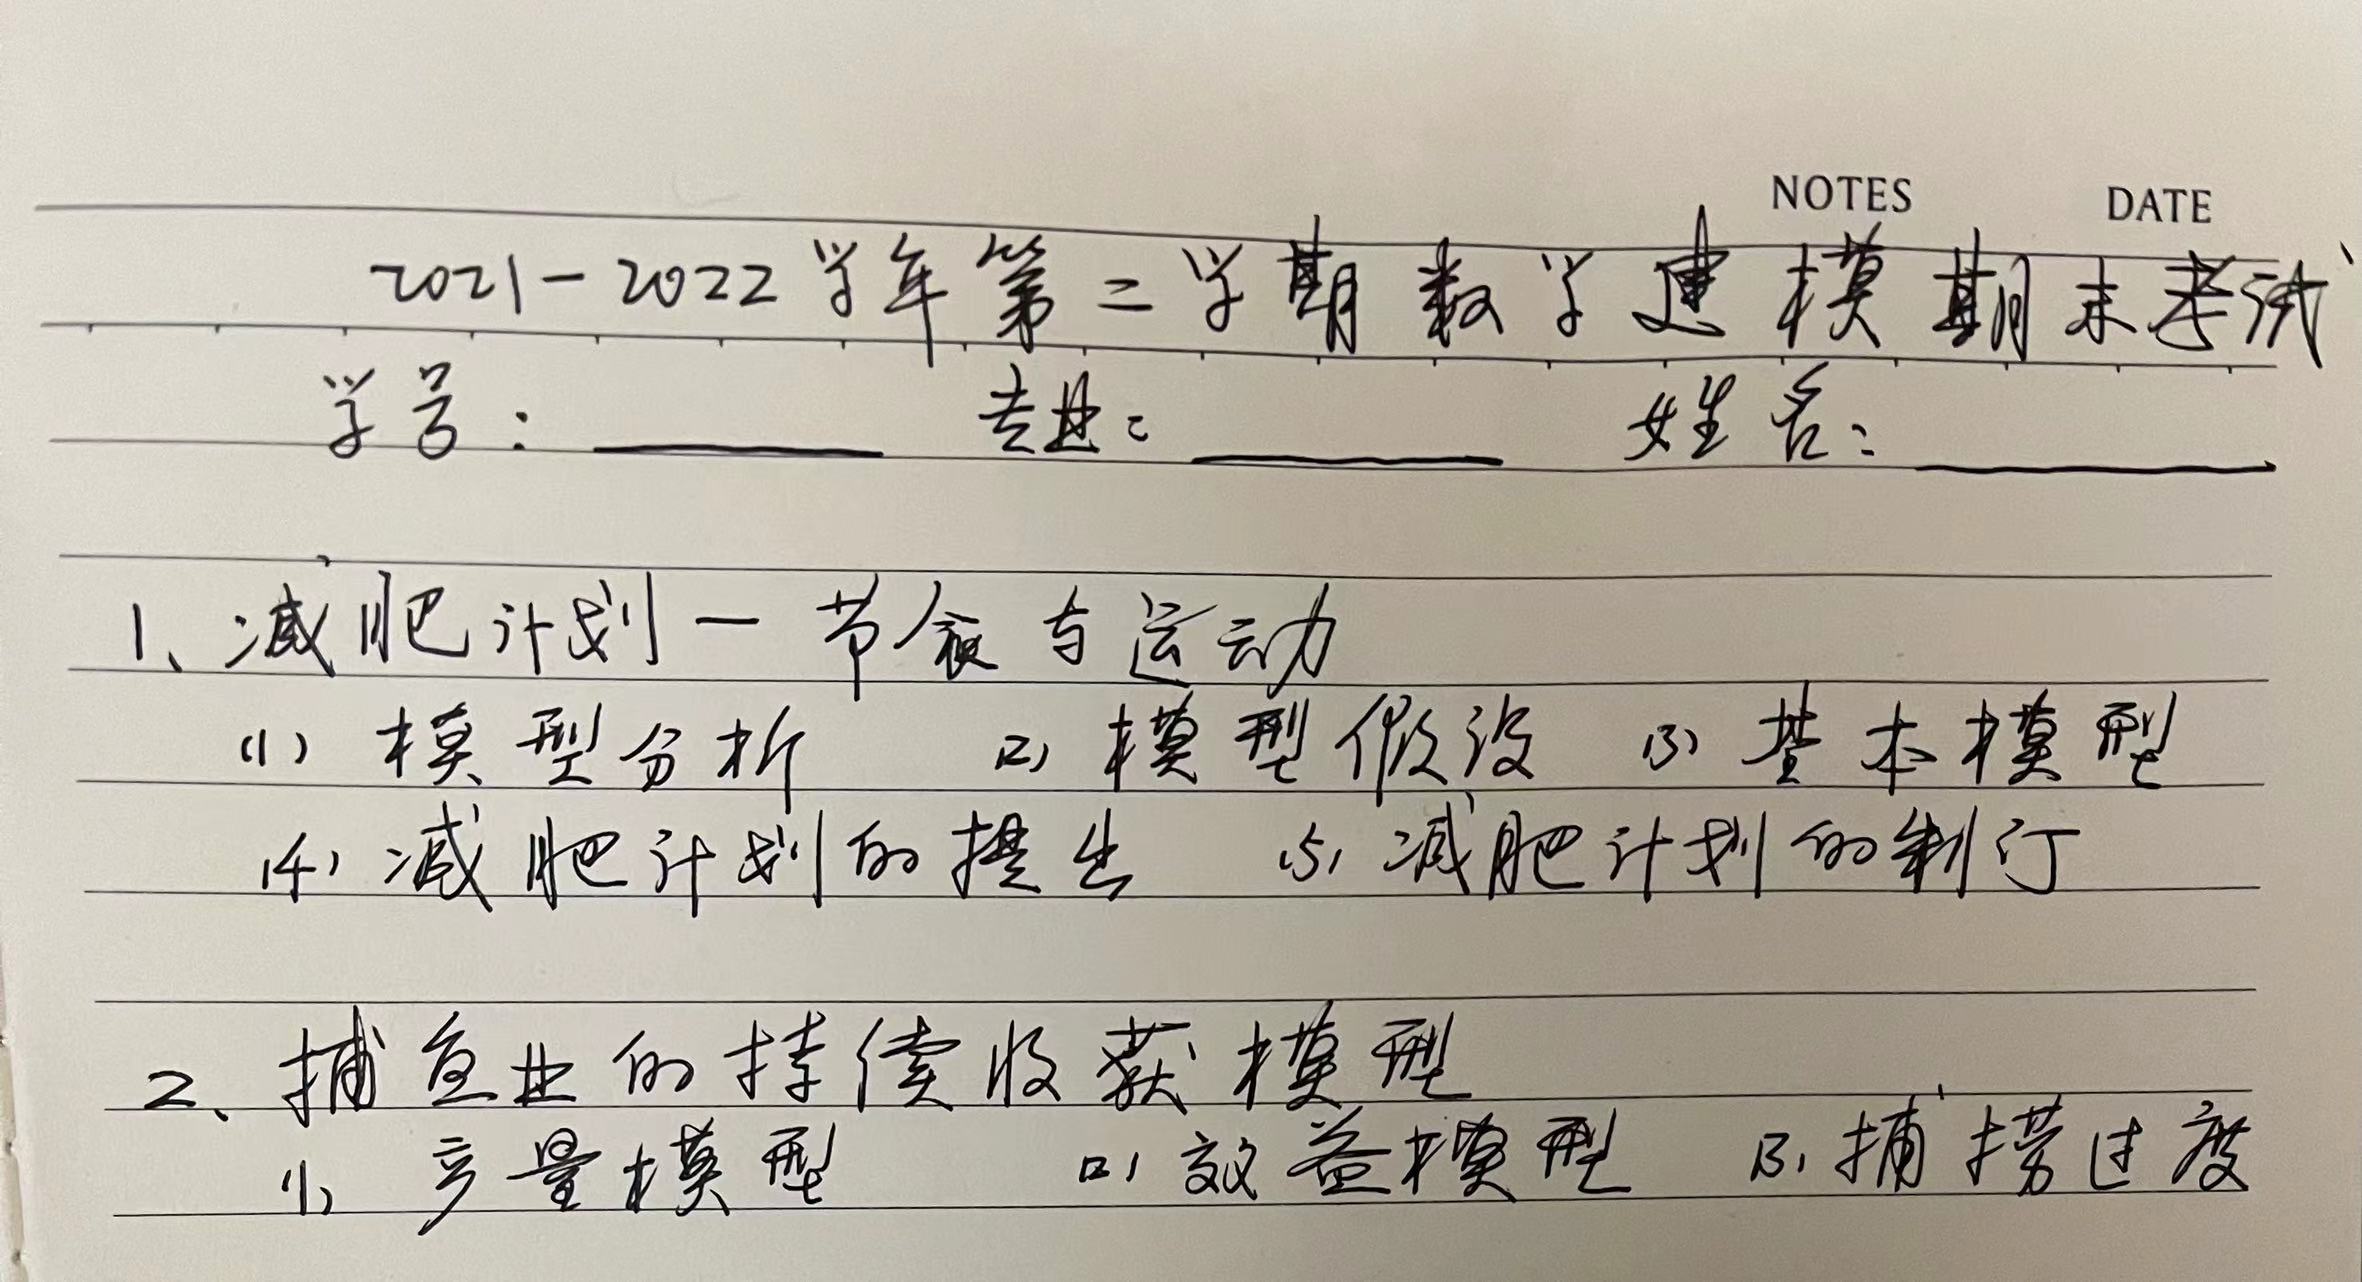 NOTES DATE
2021-2022学年第二学期数学建模期末考试
学号：______ 专业：______ 姓名：______
1、减肥计划一节食与运动
(1) 模型分析 (2) 模型假设 (3) 基本模型
(4) 减肥计划的提出 (5) 减肥计划的制订
2、捕鱼业的持续收获模型
(1) 产量模型 (2) 效益模型 (3) 捕捞过度